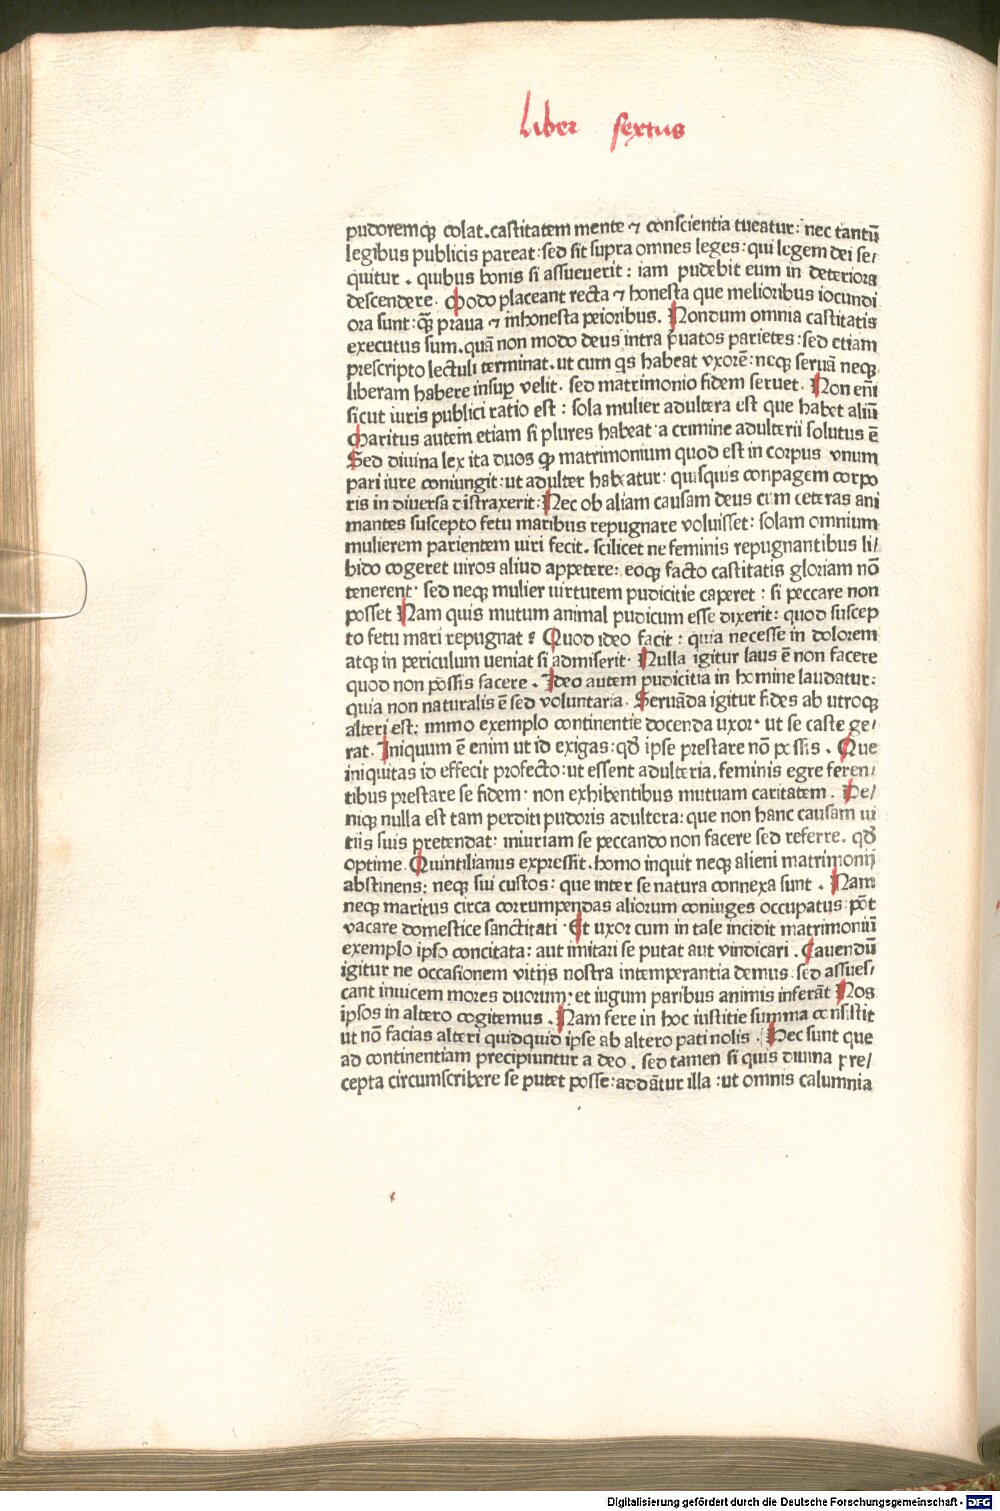 liber sextus
pudoremqꝫ colat. castitatem mente ⁊ conscientia tueatur: nec tantū
legibus publicis pareat: sed sit supra omnes leges: qui legem dei se/
quitur. quibus bonis si assueuerit: iam pudebit eum in deteriora
descendere. Modo placeant recta ⁊ honesta que melioribus iocundi
ora sunt: qꝫ praua ⁊ inhonesta peioribus. Nondum omnia castitatis
executus sum. quā non modo deus intra p̄uatos parietes: sed etiam
prescripto lectuli terminat. ut cum qs habeat vxorē: neqꝫ seruā neqꝫ
liberam habere insuꝑ velit. sed matrimonio fidem seruet. Non em̄
sicut iuris publici ratio est: sola mulier adultera est que habet aliū
Maritus autem etiam si plures habeat a crimine adulterii solutus ē
Sed diuina lex ita duos ꝙ matrimonium quod est in corpus vnum
pari iure coniungit: ut adulter habeatur: quisquis conpagem corpo
ris in diuersa distraxerit: Nec ob aliam causam deus cum ceteras ani
mantes suscepto fetu maribus repugnare voluisset: solam omnium
mulierem parientem uiri fecit. scilicet ne feminis repugnantibus li/
bido cogeret uiros aliud appetere: eoqꝫ facto castitatis gloriam nō
tenerent. sed neqꝫ mulier uirtutem pudicitie caperet: si peccare non
posset Nam quis mutum animal pudicum esse dixerit: quod suscep
to fetu mari repugnat? Quod ideo facit: quia necesse in dolorem
atqꝫ in periculum ueniat si admiserit. Nulla igitur laus ē non facere
quod non possis facere. Ideo autem pudicitia in homine laudatur:
quia non naturalis ē sed voluntaria. Seruāda igitur fides ab utroqꝫ
alteri est: immo exemplo continentie docenda uxor. ut se caste ge/
rat. Iniquum ē enim ut id exigas: qđ ipse prestare nō possis. Que
iniquitas id effecit profecto: ut essent adulteria. feminis egre feren/
tibus prestare se fidem. non exhibentibus mutuam caritatem. De/
niqꝫ nulla est tam perditi pudoris adultera: que non hanc causam ui
tiis suis pretendat. iniuriam se peccando non facere sed referre. qđ
optime. Quintilianus expressit. homo inquit neqꝫ alieni matrimonij
abstinens: neqꝫ sui custos: que inter se natura connexa sunt. Nam
neqꝫ maritus circa corrumpendas aliorum coniuges occupatus pōt
vacare domestice sanctitati. Et uxor cum in tale incidit matrimoniū
exemplo ipso concitata: aut imitari se putat aut vindicari. Cauendū
igitur ne occasionem vitijs nostra intemperantia demus. sed assues/
cant inuicem mores duorum. et iugum paribus animis inferāt Nos
ipsos in altero cogitemus. Nam fere in hoc iustitie summa consistit
ut nō facias alteri quidquid ipse ab altero pati nolis. Hec sunt que
ad continentiam precipiuntur a deo. sed tamen si quis diuina pre/
cepta circumscribere se putet posse: addātur illa: ut omnis calumnia
Digitalisierung gefördert durch die Deutsche Forschungsgemeinschaft - DFG